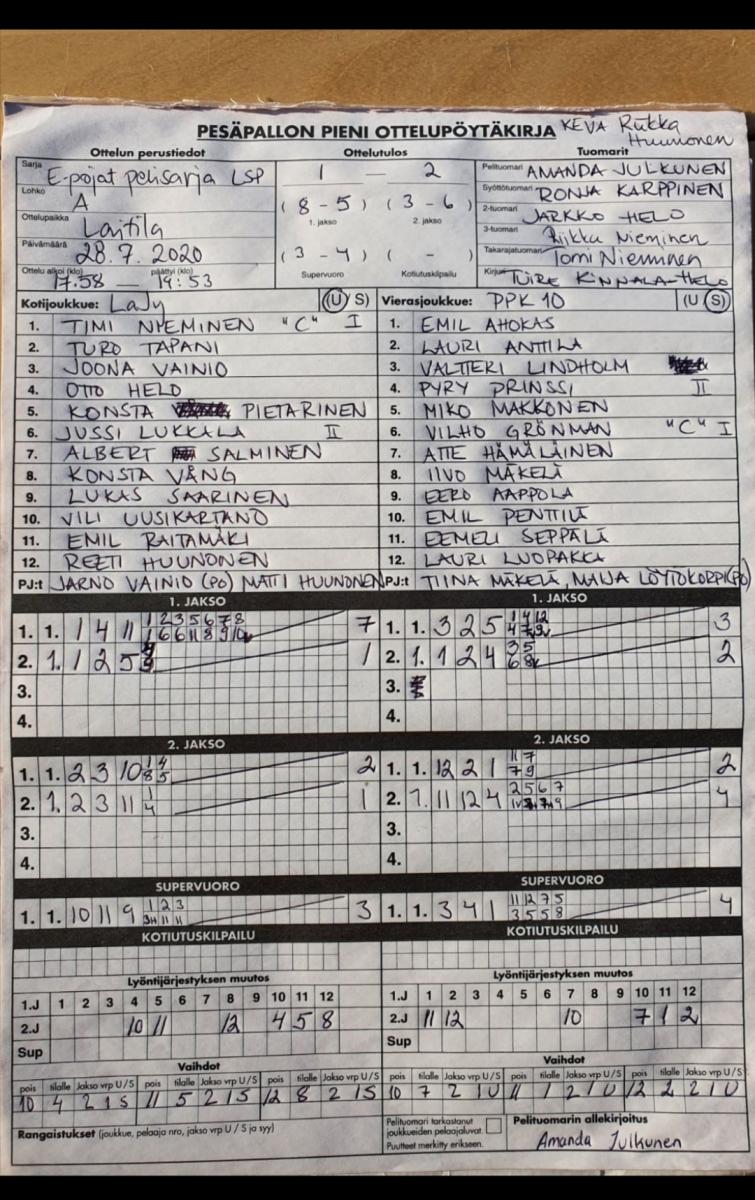 PESÄPALLON PIENI OTTELUPÖYTÄKIRJA KEVA Riikka Huunonen
Ottelun perustiedot
Sarja E-pojat pelisarja LSP
Lohko A
Ottelupaikka Laitila
Päivämäärä 28.7.2020
Ottelu alkoi (klo) 17:58 — päättyi (klo) 19:53
Ottelutulos
1 — 2
(8 - 5) (3 - 6)
1. jakso 2. jakso
(3 - 4) ( - )
Supervuoro Kotiutuskilpailu
Tuomarit
Pelituomari AMANDA JULKUNEN
Syöttötuomari RONJA KARPPINEN
2-tuomari JARKKO HELO
3-tuomari Riikka Nieminen
Takarajatuomari Tomi Nieminen
Kirjuri TUIRE KINNALA-HELO
Kotijoukkue: LaJy (U S)
1. TIMI NIEMINEN "C" I
2. TURO TAPANI
3. JOONA VAINIO
4. OTTO HELO
5. KONSTA PIETARINEN
6. JUSSI LUKKALA II
7. ALBERT SALMINEN
8. KONSTA VÅNG
9. LUKAS SAARINEN
10. VILI UUSIKARTANO
11. EMIL RAITAMÄKI
12. REETI HUUNONEN
PJ:t JARNO VAINIO (PO) MATTI HUUNONEN
Vierasjoukkue: PPK 10 (U S)
1. EMIL AHOKAS
2. LAURI ANTTILA
3. VALTTERI LINDHOLM
4. PYRY PRINSSI II
5. MIKO MAKKONEN
6. VILHO GRÖNMAN "C" I
7. ATTE HÄMÄLÄINEN
8. IIVO MÄKELÄ
9. EERO AAPPOLA
10. EMIL PENTTILÄ
11. EEMELI SEPPÄLÄ
12. LAURI LUOPAKKA
PJ:t TIINA MÄKELÄ, MAIJA LÖYTÖKORPI (PO)
1. JAKSO
1. 1. 1 4 11 1 2 3 5 6 7 8 7
1 6 6 11 8 9 10
2. 1. 1 2 5 1
3.
4.
1. JAKSO
1. 1. 3 2 5 1 4 12 3
4 7 9
2. 1. 1 2 4 3 5 2
6 8
3.
4.
2. JAKSO
1. 1. 2 3 10 1 4 2
8 5
2. 1. 2 3 11 1 1
4
3.
4.
2. JAKSO
1. 1. 12 2 1 11 7 2
7 9
2. 1. 11 12 4 2 5 6 7 4
3.
4.
SUPERVUORO
1. 1. 10 11 9 1 2 3 3
3 11 11
SUPERVUORO
1. 1. 3 4 1 11 12 7 5 4
3 5 5 8
KOTIUTUSKILPAILU
KOTIUTUSKILPAILU
Lyöntijärjestyksen muutos
1.J 1 2 3 4 5 6 7 8 9 10 11 12
2.J 10 11 12 4 5 8
Sup
Lyöntijärjestyksen muutos
1.J 1 2 3 4 5 6 7 8 9 10 11 12
2.J 11 12 10 7 1 2
Sup
Vaihdot
pois tilalle Jakso vrp U/S pois tilalle Jakso vrp U/S pois tilalle Jakso vrp U/S
10 4 2 1 S 11 5 2 1 S 12 8 2 1 S
Vaihdot
pois tilalle Jakso vrp U/S pois tilalle Jakso vrp U/S pois tilalle Jakso vrp U/S
10 7 2 1 U 11 1 2 1 U 12 2 2 1 U
Rangaistukset (joukkue, pelaaja nro, jakso vrp U / S ja syy)
Pelituomari tarkastanut
joukkueiden pelaajaluvat.
Puutteet merkitty erikseen.
Pelituomarin allekirjoitus
Amanda Julkunen